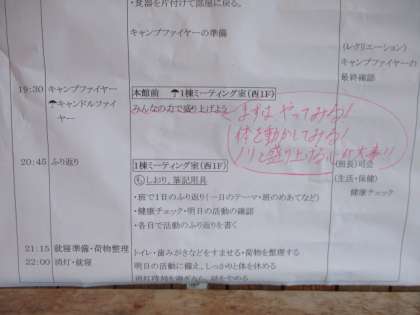 ・食器を片付けて部屋に戻る。
キャンプファイヤーの準備
(レクリエーション)
キャンプファイヤーの
最終確認
19:30 キャンプファイヤー
☂キャンドルファイ
ヤー
本館前 ☂1棟ミーティング室(西1F)
みんなの力で盛り上げよう
まずは やってみる!
体を動かしてみる!
ノリと盛り上げる心が大事!!
20:45 ふり返り
1棟ミーティング室(西1F)
(班長)司会
も しおり、筆記用具
(生活・保健)
・班で1日のふり返り(一日のテーマ・班のめあてなど)
健康チェック
・健康チェック・明日の活動の確認
・各自で活動のふり返りを書く
21:15 就寝準備・荷物整理
トイレ・歯みがきなどをすませる・荷物を整理する
22:00 消灯・就寝
明日の活動に備え、しっかりと体を休める